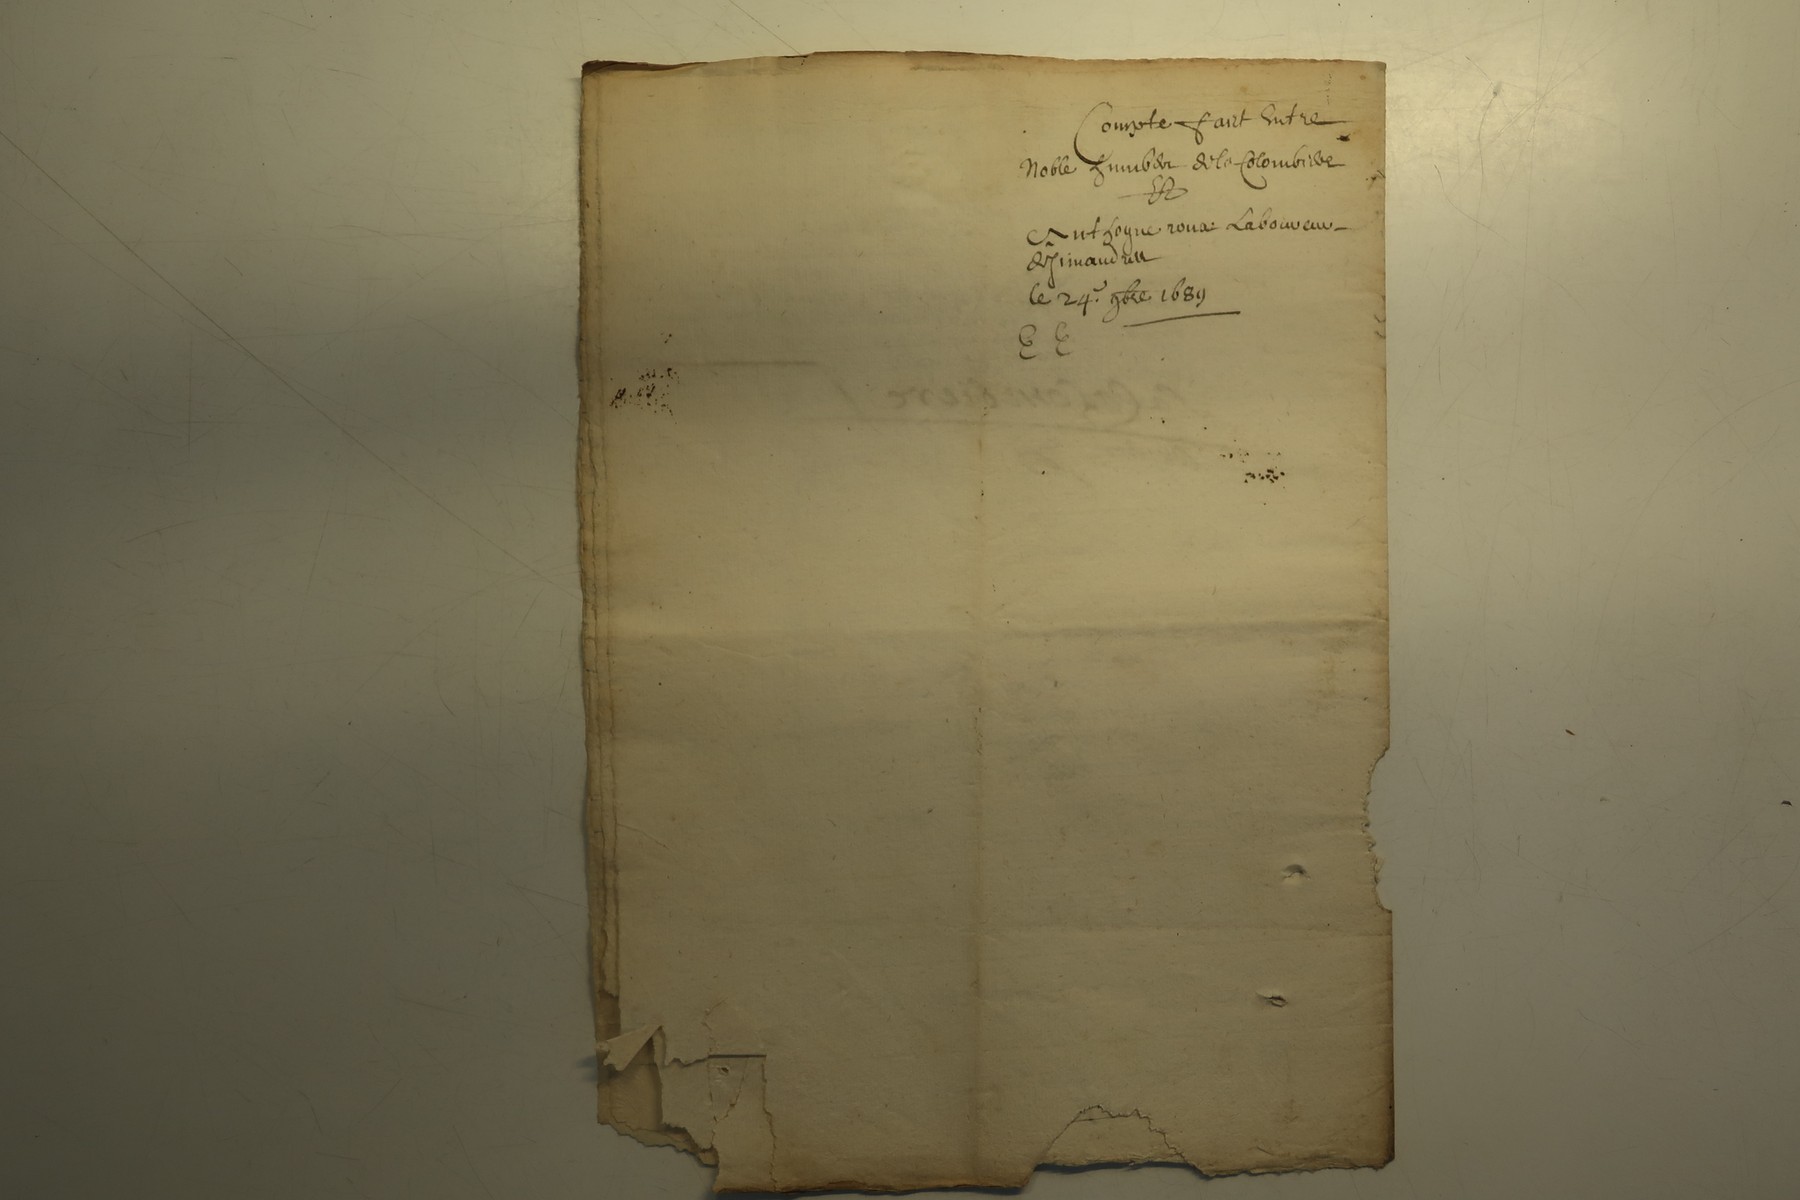 Compte faict Entre
Noble humber de la Colombiere
Et
Anthoyne roux Laboureur
de
le 24.e 9bre 1689
E E